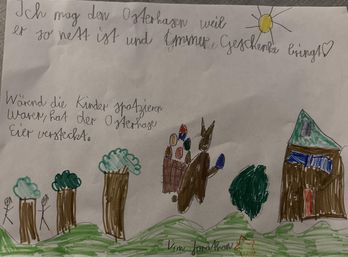 Ich mag den Osterhasen weil
er so nett ist und immer Geschenke bringt♡
Wärend die Kinder spatzieren
waren, hat der Osterhase
Eier versteckt.
Von Jonathan